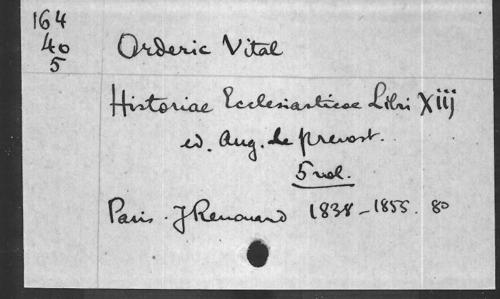 164
40
5
Orderic Vital
Historiae Ecclesiasticae Libri Xiij
ed. Aug. le prevost.
5 vol.
Paris. J Renouard 1838-1855. 80